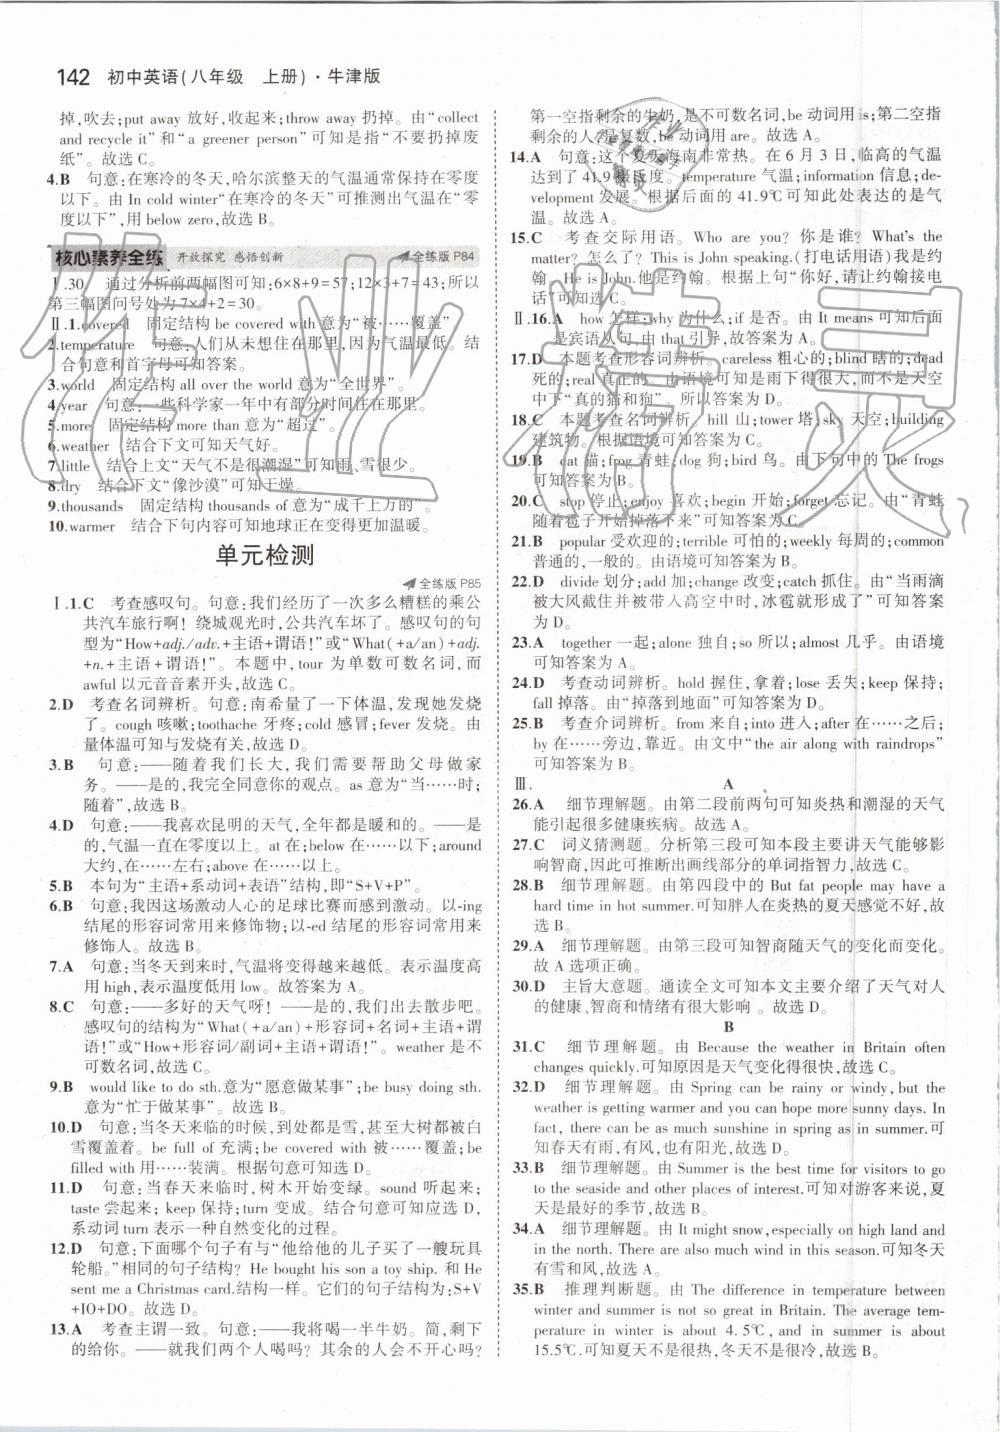 142 初中英语(八年级 上册)·牛津版
掉,吹去;put away 放好,收起来;throw away 扔掉。由“collect
and recycle it”和“a greener person”可知是指“不要扔掉废
纸”。故选 C。
4.B 句意:在寒冷的冬天,哈尔滨整天的气温通常保持在零度
以下。由 In cold winter“在寒冷的冬天”可推测出气温在“零
度以下”,用 below zero,故选 B。
核心素养全练 开放探究 感悟创新 全练版 P84
Ⅰ.30 通过分析前两幅图可知:6×8+9=57;12×3+7=43;所以
第三幅图问号处为7×4+2=30。
Ⅱ.1.covered 固定结构 be covered with 意为“被……覆盖”。
2.temperature 句意:人们从未想住在那里,因为气温最低。结
合句意和首字母可知答案。
3.world 固定结构 all over the world 意为“全世界”。
4.year 句意:一些科学家一年中有部分时间住在那里。
5.more 固定结构 more than 意为“超过”。
6.weather 结合下文可知天气好。
7.little 结合上文“天气不是很潮湿”可知雨、雪很少。
8.dry 结合下文“像沙漠”可知干燥。
9.thousands 固定结构 thousands of 意为“成千上万的”。
10.warmer 结合下句内容可知地球正在变得更加温暖。
单元检测
全练版 P85
Ⅰ.1.C 考查感叹句。句意:我们经历了一次多么糟糕的乘公
共汽车旅行啊! 绕城观光时,公共汽车坏了。感叹句的句
型为“How+adj./adv.+主语+谓语!”或“What(+a/an)+adj.
+n.+主语+谓语!”。本题中,tour 为单数可数名词,而
awful 以元音音素开头,故选 C。
2.D 考查名词辨析。句意:南希量了一下体温,发现她发烧
了。cough 咳嗽;toothache 牙疼;cold 感冒;fever 发烧。由
量体温可知与发烧有关,故选 D。
3.B 句意:——随着我们长大,我们需要帮助父母做家
务。——我完全同意你的观点。as 意为“当……时;
随着”,故选 B。
4.D 句意:——我喜欢昆明的天气,全年都是暖和的。——
是的,气温一直在零度以上。at 在;below 在……以下;around
大约,在……左右;above 在……以上。
5.B 本句为“主语+系动词+表语”结构,即“S+V+P”。
6.B 句意:我因这场激动人心的足球比赛而感到激动。以-ing
结尾的形容词常用来修饰物;以-ed 结尾的形容词常用来
修饰人。故选 B。
7.A 句意:当冬天到来时,气温将变得越来越低。表示温度高
用 high,表示温度低用 low。故答案为 A。
8.C 句意:——多好的天气呀! ——是的,我们出去散步吧。
感叹句的结构为“What(+a/an)+形容词+名词+主语+谓
语!”或“How+形容词/副词+主语+谓语!”。weather 是不
可数名词,故选 C。
9.B would like to do sth.意为“愿意做某事”;be busy doing sth.
意为“忙于做某事”。故选 B。
10.D 句意:当冬天来临的时候,到处都是雪,甚至大树都被白
雪覆盖着。be full of 充满;be covered with 被……覆盖;be
filled with 用……装满。根据句意可知选 D。
11.D 句意:当春天来临时,树木开始变绿。sound 听起来;
taste 尝起来; keep 保持;turn 变成。结合句意可知选 D,
系动词 turn 表示一种自然变化的过程。
12.D 句意:下面哪个句子有与“他给他的儿子买了一艘玩具
轮船。”相同的句子结构? He bought his son a toy ship. 和 He
sent me a Christmas card.结构一样。它们的句子结构为:S+V
+IO+DO。故选 D。
13.A 考查主谓一致。句意:——我将喝一半牛奶。简,剩下
的给你。——就我们两个人喝吗? 其余的人会不开心吗?
第一空指剩余的牛奶,是不可数名词,be 动词用 is;第二空指
剩余的人,是复数,be 动词用 are。故选 A。
14.A 句意:这个夏天海南非常热。在 6 月 3 日,临高的气温
达到了 41.9摄氏度。temperature 气温;information 信息;de-
velopment 发展。根据后面的 41.9℃可知此处表达的是气
温。故选 A。
15.C 考查交际用语。Who are you? 你是谁? What's the
matter? 怎么了? This is John speaking.(打电话用语)我是约
翰。He is John.他是约翰。根据上句“你好,请让约翰接电
话”可知选 C。
Ⅱ.16.A how 怎样;why 为什么;if 是否。由 It means 可知后面
是宾语从句,由 that 引导,故答案为 A。
17.D 本题考查形容词辨析。careless 粗心的;blind 瞎的;dead
死的;real 真正的。由语境可知是雨下得很大,而不是天空
中下“真的猫和狗”。所以答案为 D。
18.C 本题考查名词辨析。hill 山;tower 塔;sky 天空;building
建筑物。根据语境可知答案为 C。
19.B cat 猫;frog 青蛙;dog 狗;bird 鸟。由下句中的 The frogs
可知答案为 B。
20.C stop 停止;enjoy 喜欢;begin 开始;forget 忘记。由“青蛙
随着雹子开始掉落下来”可知答案为 C。
21.B popular 受欢迎的;terrible 可怕的;weekly 每周的;common
普通的,一般的。由语境可知答案为 B。
22.D divide 划分;add 加;change 改变;catch 抓住。由“当雨滴
被大风截住并被带入高空中时,冰雹就形成了”可知答案
为 D。
23.A together 一起;alone 独自;so 所以;almost 几乎。由语境
可知答案为 A。
24.D 考查动词辨析。hold 握住,拿着;lose 丢失;keep 保持;
fall 掉落。由“掉落到地面”可知答案为 D。
25.B 考查介词辨析。from 来自;into 进入;after 在……之后;
by 在……旁边,靠近。由文中“the air along with raindrops”
可知答案为 B。
Ⅲ. A
26.A 细节理解题。由第二段前两句可知炎热和潮湿的天气
能引起很多健康疾病。故选 A。
27.C 词义猜测题。分析第三段可知本段主要讲天气能够影
响智商,因此可推断出画线部分的单词指智力,故选 C。
28.B 细节理解题。由第四段中的 But fat people may have a
hard time in hot summer.可知胖人在炎热的夏天感觉不好,故
选 B。
29.A 细节理解题。由第三段可知智商随天气的变化而变化。
故 A 选项正确。
30.D 主旨大意题。通读全文可知本文主要介绍了天气对人
的健康、智商和情绪有很大影响 。故选 D。
B
31.C 细节理解题。由 Because the weather in Britain often
changes quickly.可知原因是天气变化得很快,故选 C。
32.D 细节理解题。由 Spring can be rainy or windy, but the
weather is getting warmer and you can hope more sunny days. In
fact, there can be as much sunshine in spring as in summer.可
知春天有雨,有风,也有阳光,故选 D。
33.B 细节理解题。由 Summer is the best time for visitors to go
to the seaside and other places of interest.可知对游客来说,夏
天是最好的季节,故选 B。
34.A 细节理解题。由 It might snow,especially on high land and
in the north. There are also much wind in this season.可知冬天
有雪和风,故选 A。
35.B 推理判断题。由 The difference in temperature between
winter and summer is not so great in Britain. The average tem-
perature in winter is about 4. 5℃, and in summer is about
15.5℃.可知夏天不是很热,冬天不是很冷,故选 B。
作业精灵